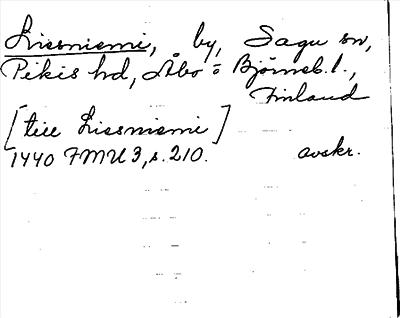 Liesniemi, by, Sagu sn,
Pikis hd, Åbo = Björneb. l.,
Finland
[tiil Liesniemi]
1440 FMU 3, s. 210. avskr.